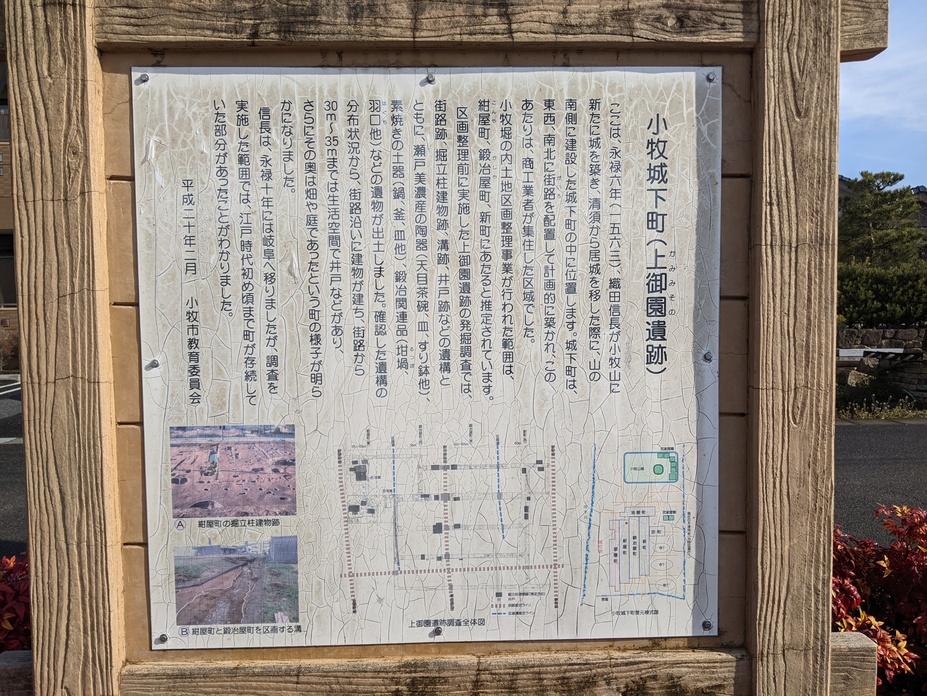 小牧城下町（上御園遺跡）
かみみその
ここは、永禄六年（一五六三）、織田信長が小牧山に
新たに城を築き、清須から居城を移した際に、山の
南側に建設した城下町の中に位置します。城下町は、
東西、南北に街路を配置して計画的に築かれ、この
あたりは、商工業者が集住した区域でした。
小牧堀の内土地区画整理事業が行われた範囲は、
紺屋町、鍛冶屋町、新町にあたると推定されています。
区画整理前に実施した上御園遺跡の発掘調査では、
街路跡、掘立柱建物跡、溝跡、井戸跡などの遺構と
ともに、瀬戸美濃産の陶器（天目茶碗、皿、すり鉢他）、
素焼きの土器（鍋、釜、皿他）、鍛冶関連品（坩堝、
羽口他）などの遺物が出土しました。確認した遺構の
分布状況から、街路沿いに建物が建ち、街路から
30m〜35mまでは生活空間で井戸などがあり、
さらにその奥は畑や庭であったという町の様子が明ら
かになりました。
信長は、永禄十年には岐阜へ移りましたが、調査を
実施した範囲では、江戸時代初め頃まで町が存続して
いた部分があったことがわかりました。
平成二十年二月　小牧市教育委員会
A 紺屋町の掘立柱建物跡
B 紺屋町と鍛冶屋町を区画する溝
上御園遺跡調査全体図
小牧城下町復元模式図